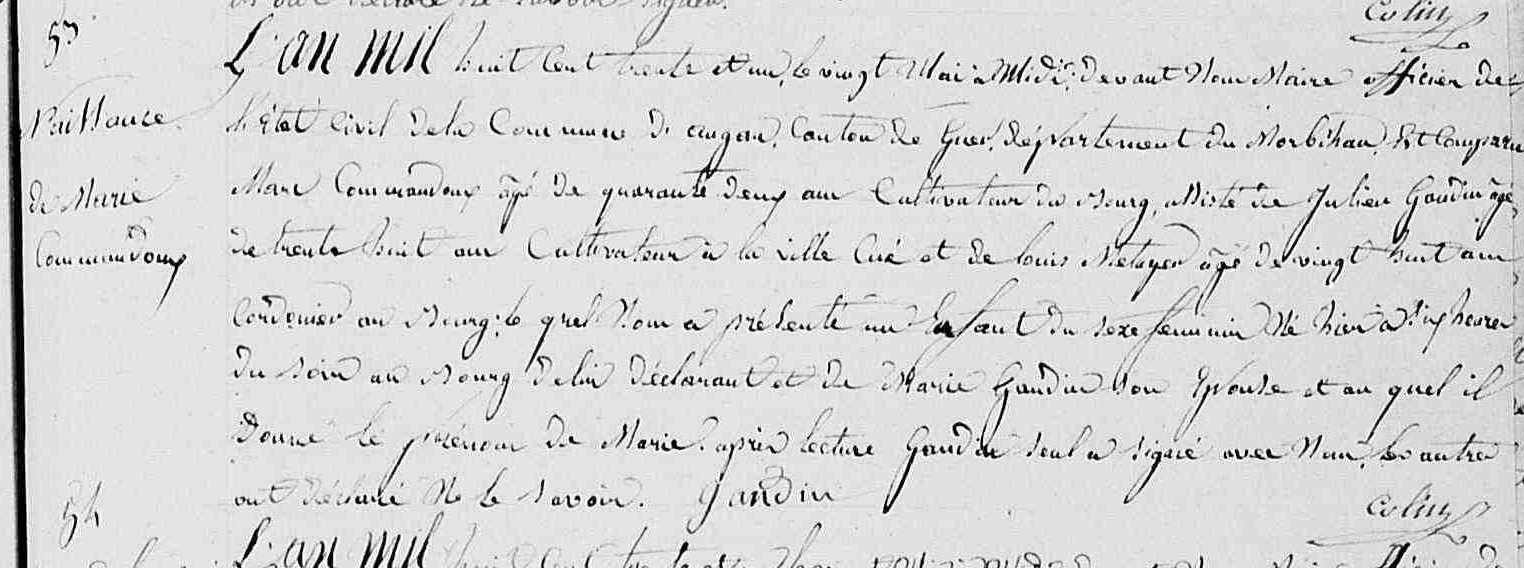 Colin
53
Naissance
de Marie
Commandoux
L'an mil huit cent trente et un, le vingt Mai à Midi, devant Nous Maire officier de
l'Etat Civil de la Commune d'augan, Canton de Guer, département du Morbihan, Est Comparu
Marc Commandoux âgé de quarante deux ans Cultivateur du Bourg, assisté de Julien Gaudin âgé
de trente huit ans Cultivateur à la ville Cué et de louis Metayer âgé de vingt huit ans
Cordonier au Bourg; le quel Nous a présenté un Enfant du sexe feminin Né hier à six heures
du soir au Bourg de lui déclarant et de Marie Gaudin son Epouse et au quel il
donné le prénom de Marie. après lecture Gaudin seul a signé avec Nous, les autres
ont déclaré Ne le savoir. Gaudin
Colin
54
L'an mil huit cent trente et un